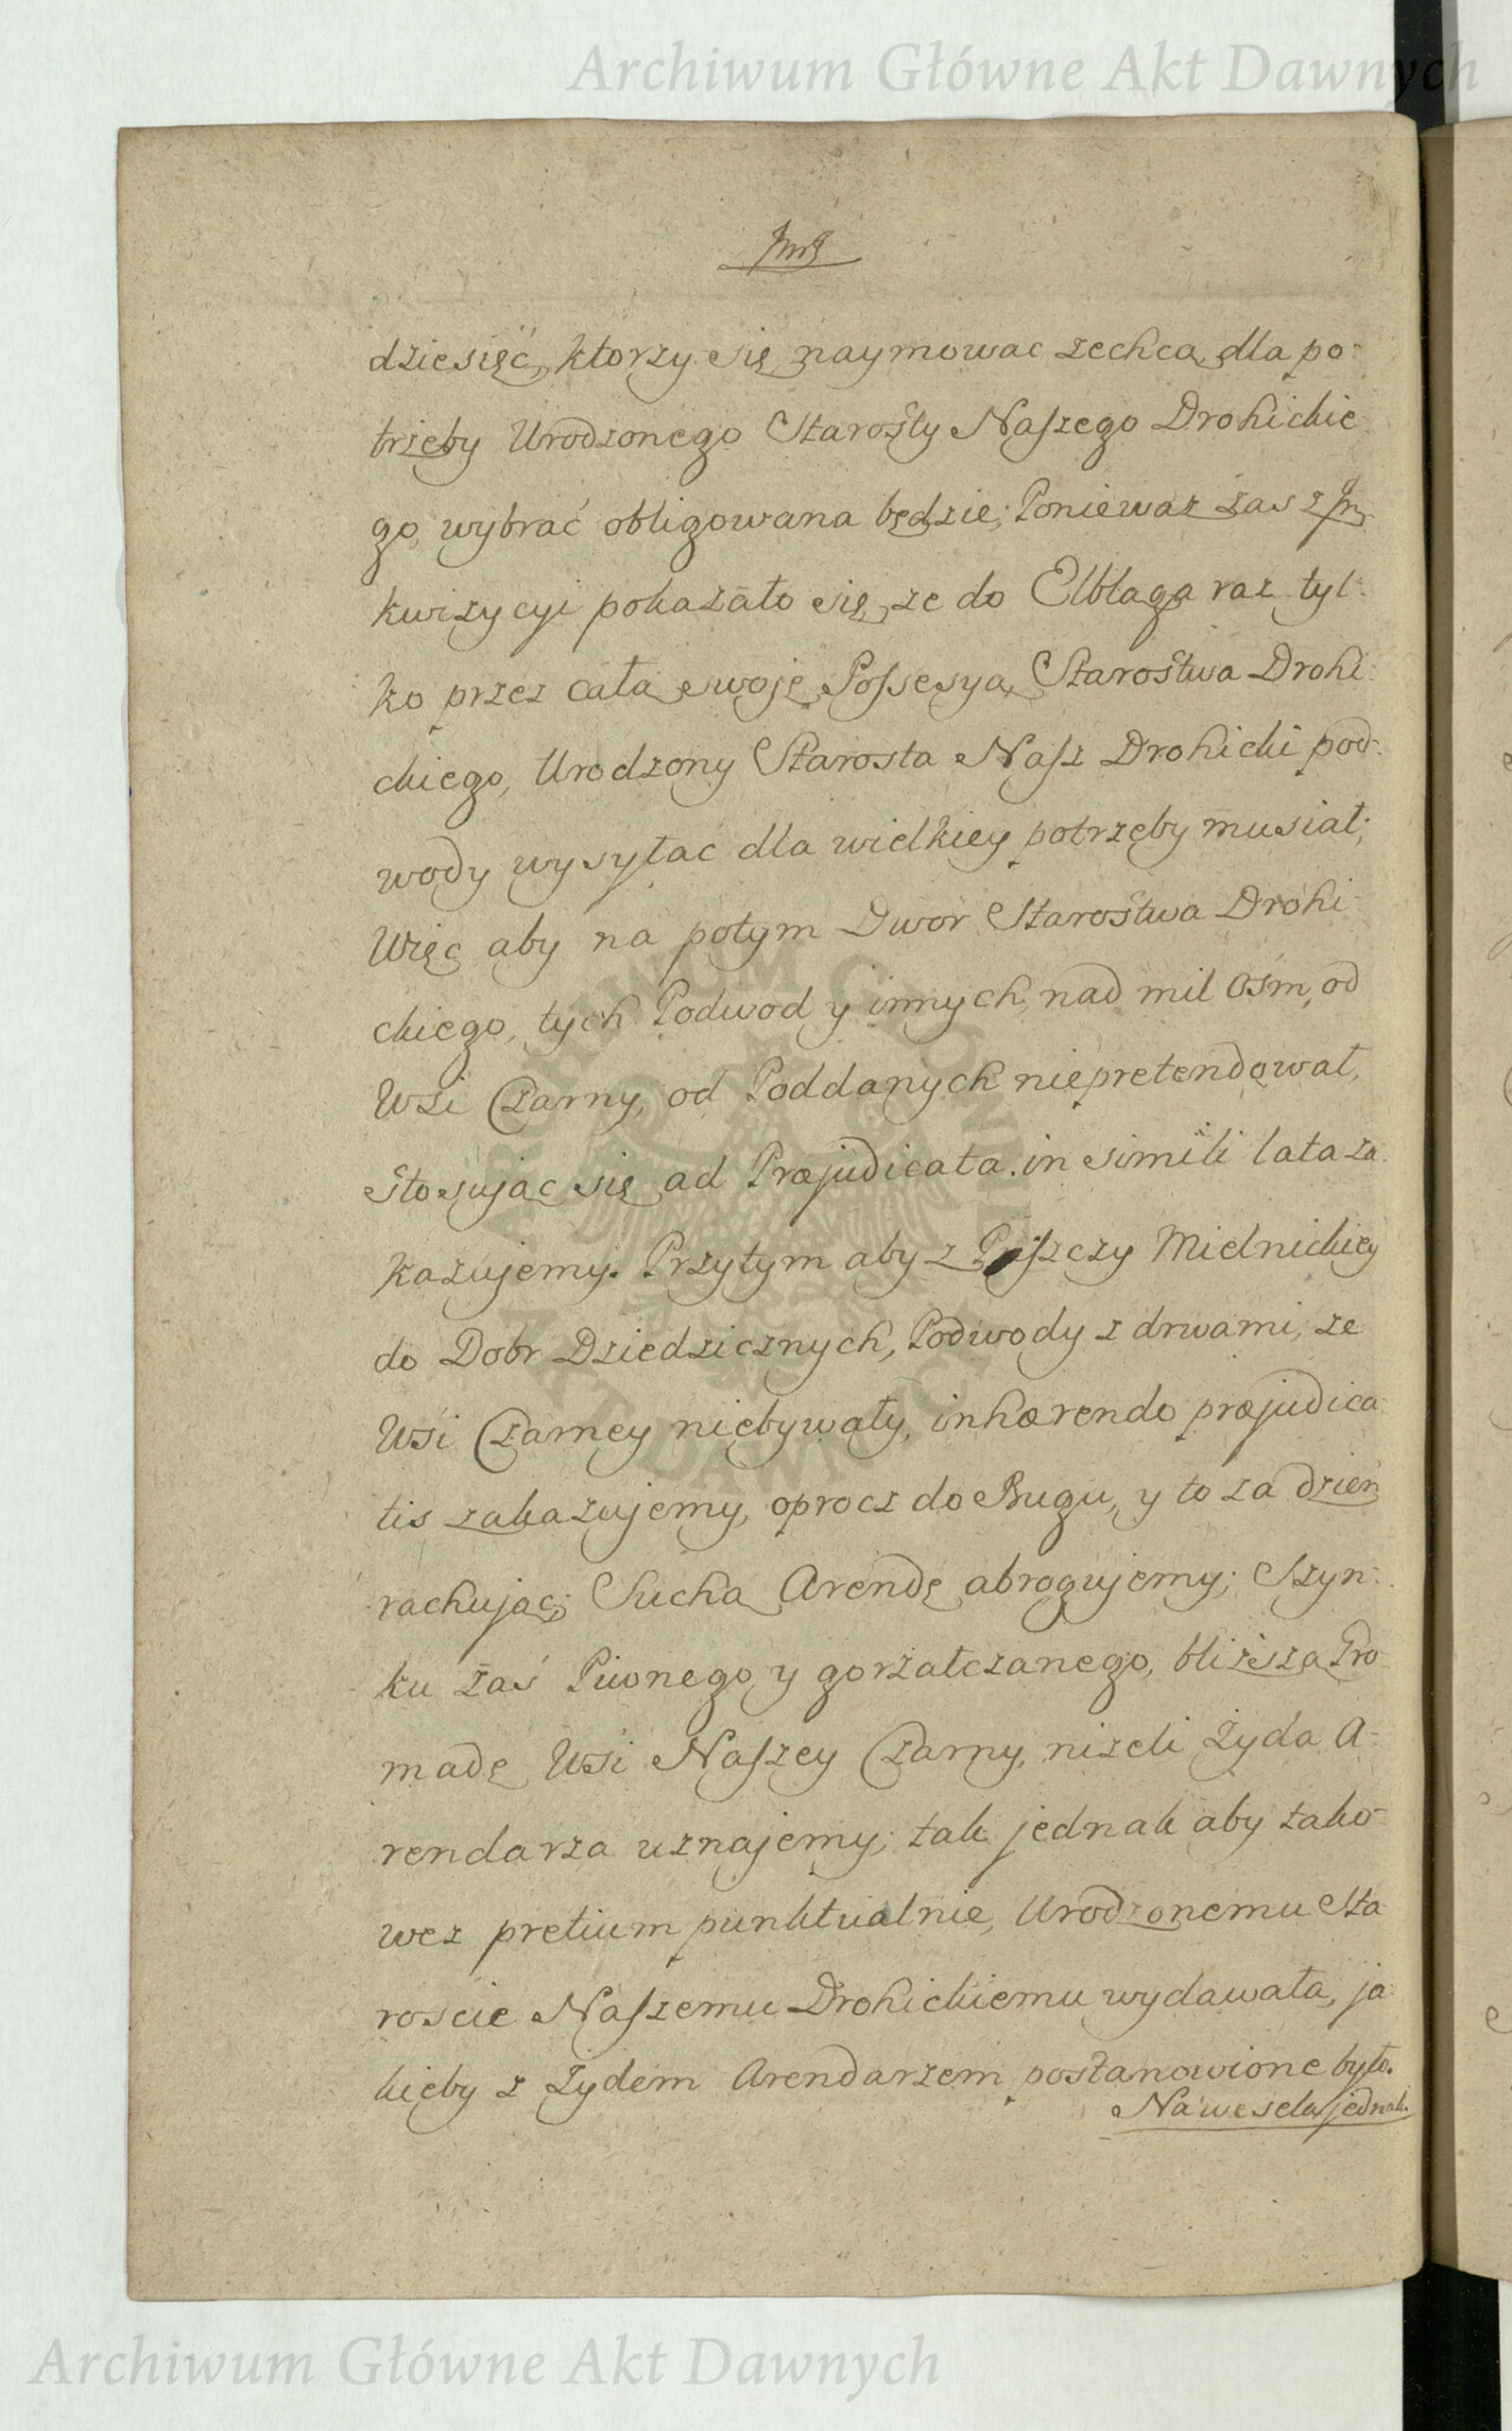 Archiwum Główne Akt Dawnych
dziesięć, ktorzy się naymowac zechcą dla po-
trzeby Urodzonego Starosty Naszego Drohickie
go, wybrać obligowana będzie; Poniewaz zas z In
kwizycyi pokazało się, ze do Elbląga raz tyl-
ko przez całą swoję Possesyą, Starostwa Drohi-
ckiego, Urodzony Starosta Nasz Drohicki pod-
wody wysyłac dla wielkiey potrzeby musiał;
Więc aby na potym Dwor Starostwa Drohi-
ckiego, tych Podwod y innych, nad mil Osm, od
Wsi Czarny, od Poddanych niepretendował,
stosując się ad Præjudicata in simili lata za-
kazujemy. Przytym aby z Puszczy Mielnickiey
do Dobr Dziedzicznych, Podwody z drwami, ze
Wsi Czarney niebywały, inhærendo præjudica-
tis zakazujemy, oprocz do Bugu, y to za dzień
rachując; Suchą Arendę abrogujemy; Szyn-
ku zaś Piwnego y gorzałczanego, bliższą Gro
madę Wsi Naszey Czarny, nizeli Żyda A-
rendarza uznajemy; tak jednak aby tako-
wez pretium punktualnie, Urodzonemu Sta
roscie Naszemu Drohickiemu wydawała, ja-
kieby z Żydem Arendarzem postanowione było.
Na wesela jednak.
ARCHIWUM GŁÓWNE
AKT DAWNYCH
Archiwum Główne Akt Dawnych